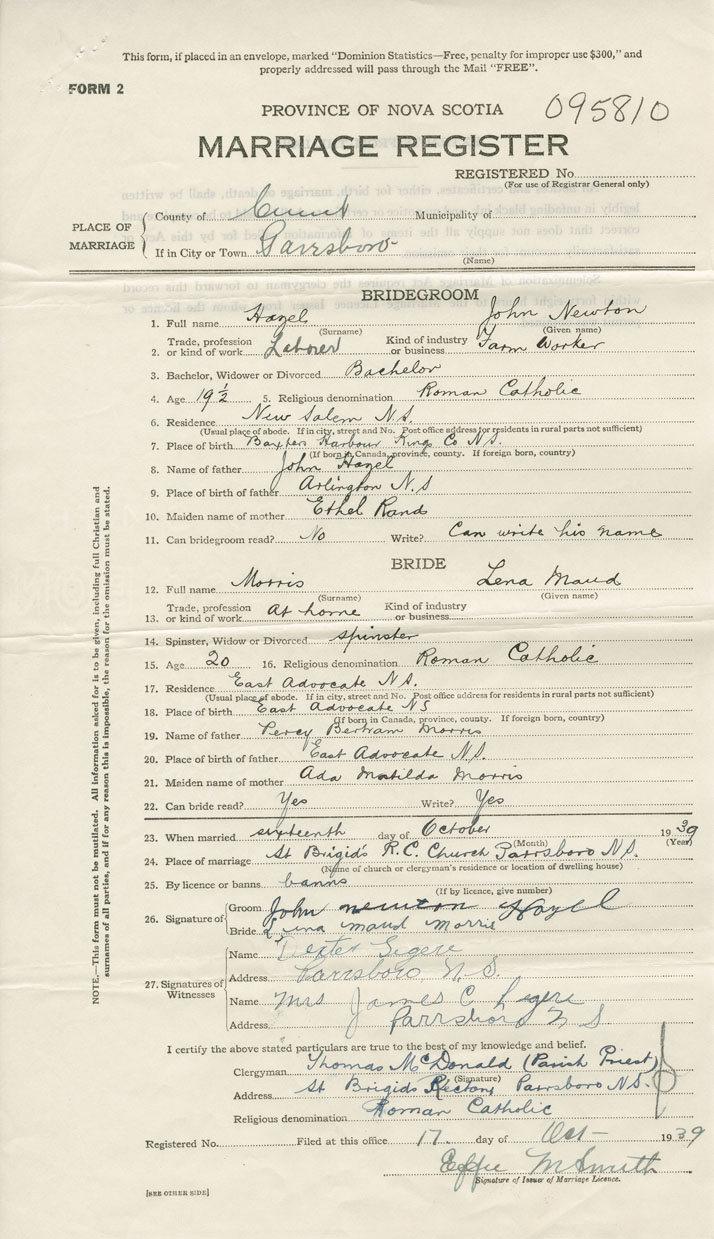 This form, if placed in an envelope, marked "Dominion Statistics—Free, penalty for improper use $300," and
properly addressed will pass through the Mail "FREE".
FORM 2
PROVINCE OF NOVA SCOTIA 095810
MARRIAGE REGISTER
REGISTERED No.
(For use of Registrar General only)
PLACE OF MARRIAGE
County of Municipality of
If in City or Town Parrsboro
(Name)
BRIDEGROOM
1. Full name Hazel John Newton
(Surname) (Given name)
2. Trade, profession or kind of work Laborer Kind of industry or business Farm Worker
3. Bachelor, Widower or Divorced Bachelor
4. Age 19½ 5. Religious denomination Roman Catholic
6. Residence New Salem N.S.
(Usual place of abode. If in city, street and No. Post office address for residents in rural parts not sufficient)
7. Place of birth Baxters Harbour Kings Co N.S.
(If born in Canada, province, county. If foreign born, country)
8. Name of father John Hazel
9. Place of birth of father Arlington N.S
10. Maiden name of mother Ethel Rand
11. Can bridegroom read? No Write? Can write his name
BRIDE
12. Full name Morris Lena Maud
(Surname) (Given name)
13. Trade, profession or kind of work At home Kind of industry or business
14. Spinster, Widow or Divorced spinster
15. Age 20 16. Religious denomination Roman Catholic
17. Residence East Advocate N.S.
(Usual place of abode. If in city, street and No. Post office address for residents in rural parts not sufficient)
18. Place of birth East Advocate NS
(If born in Canada, province, county. If foreign born, country)
19. Name of father Percy Bertram Morris
20. Place of birth of father East Advocate N.S.
21. Maiden name of mother Ada Matilda Morris
22. Can bride read? Yes Write? Yes
23. When married sixteenth day of October 1939
(Month) (Year)
24. Place of marriage St Brigid's R.C. Church Parrsboro N.S.
(Name of church or clergyman's residence or location of dwelling house)
25. By licence or banns banns
(If by licence, give number)
26. Signature of Groom John newton Hazel
Bride Lena maud Morris
27. Signatures of Witnesses
Name Dexter Legere
Address Parrsboro, N.S.
Name Mrs James C Legere
Address Parrsboro N S
I certify the above stated particulars are true to the best of my knowledge and belief.
Clergyman Thomas McDonald (Parish Priest)
(Signature)
Address St Brigids Rectory Parrsboro N.S.
Religious denomination Roman Catholic
Registered No. Filed at this office 17 day of Oct 1939
Effie McSmith
Signature of Issuer of Marriage Licence.
[SEE OTHER SIDE]
NOTE.—This form must not be mutilated. All information asked for is to be given, including full Christian and
surnames of all parties, and if for any reason this is impossible, the reason for the omission must be stated.